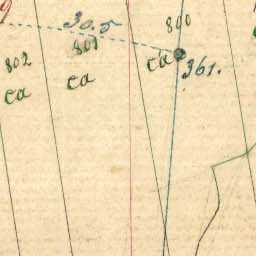 30.5
800
801
802
ca
ca
ca
361.